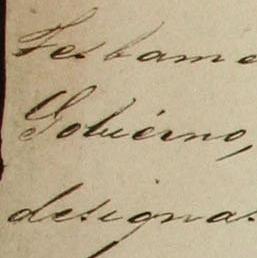 Testame
Gobiérno,
designas